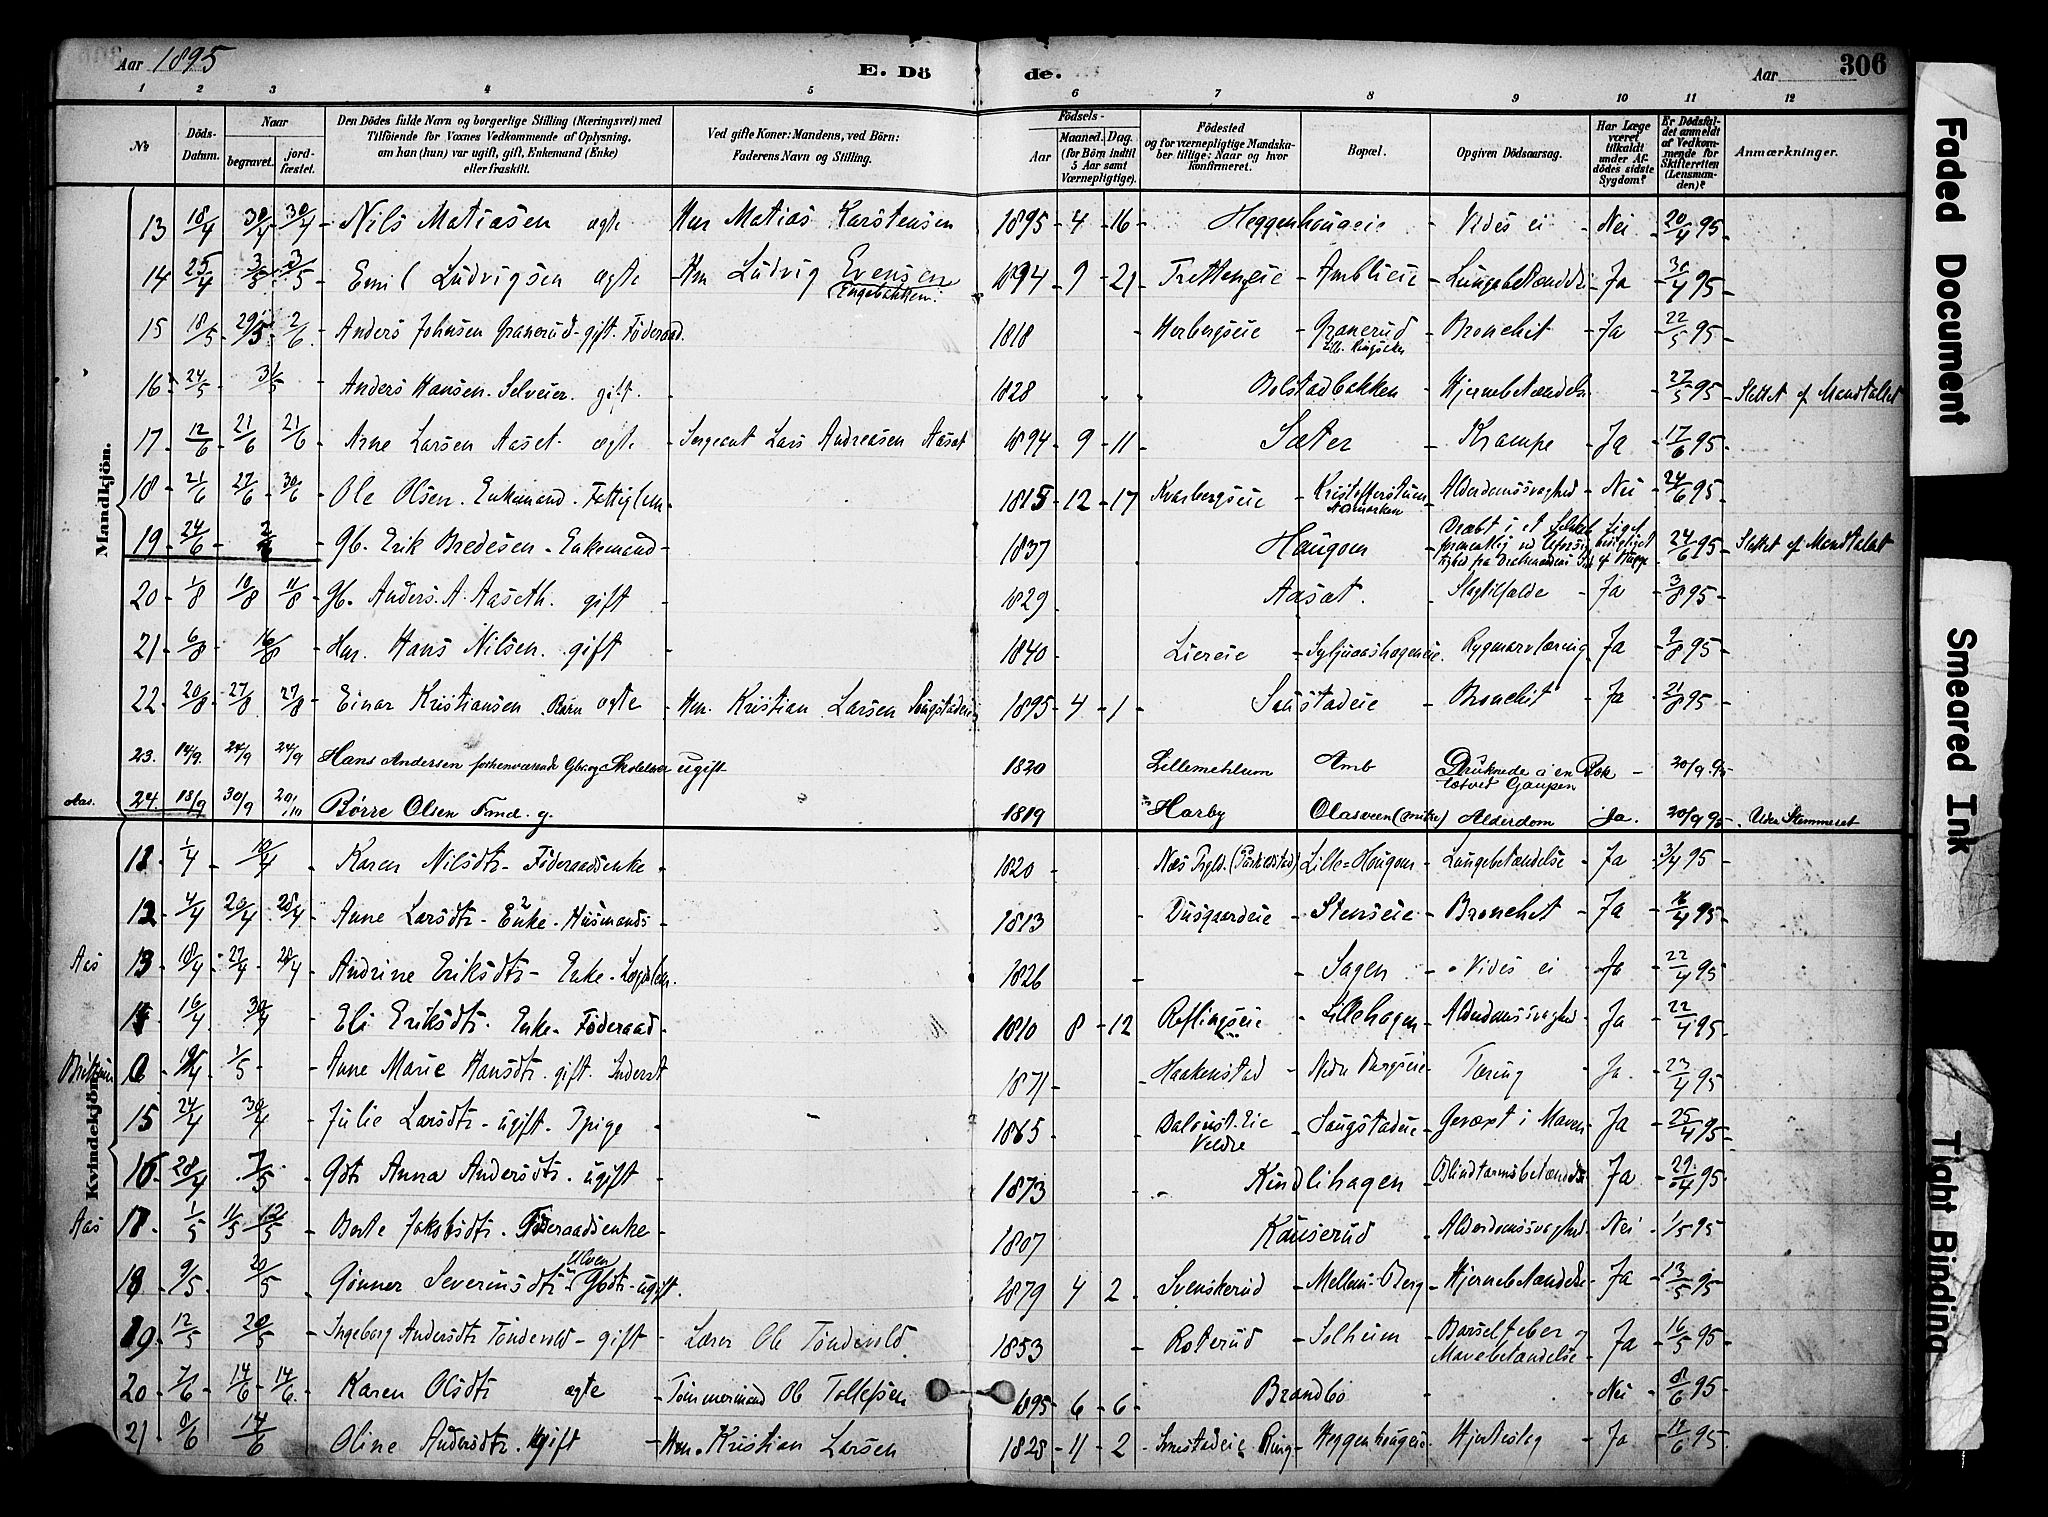 Aar 1895
E. Dö de.
Aar
306
1 2 3 4 5 6 7 8 9 10 11 12
No
Döds-Datum.
Naar
begravet. jord-fæstet.
Den Dödes fulde Navn og borgerlige Stilling (Næringsvei) med
Tilföiende for Voxnes Vedkommende af Oplysning,
om han (hun) var ugift, gift, Enkemand (Enke)
eller fraskilt.
Ved gifte Koner: Mandens, ved Börn:
Faderens Navn og Stilling.
Födsels-
Aar
Maaned. Dag.
(for Börn indtil
5 Aar samt
Værnepligtige).
Födested
og for værnepligtige Mandska-
ber tillige: Naar og hvor
konfirmeret.
Bopæl.
Opgiven Dödsaarsag.
Har Læge
været
tilkaldt
under Af-
dödes sidste
Sygdom?
Er Dödsfal-
det anmeldt
af Vedkom-
mende for
Skifteretten
(Lensman-
den)?
Anmærkninger.
Mandkjön.
13 18/4 30/4 30/4 Nils Matiasen ægte Hm Matias Karstensen 1895 4 16 Heggenhougeie Vides ei Nei 20/4 95
14 25/4 3/5 3/5 Emil Ludvigsen ægte Hm Ludvig Evensen 1894 9 21 Trettengeie Amblieie Lungebetændelse Ja 30/4 95
(Engebakken)
15 18/5 29/5 2/6 Anders Johnsen Granerud gift Föderaad 1818 Herbergseie Granerud Bronchit Ja 22/5 95
Lill. Ringsaker
16 24/5 31/5 Anders Hansen Selveier gift 1828 Bolstadbakken Hjernebetændelse 27/5 95 Slettet af Mandtallet
17 12/6 21/6 21/6 Arne Larsen Aaset ægte Sergeant Lars Andreasen Aaset 1894 9 11 Sæter Krampe Ja 17/6 95
18 21/6 27/6 30/6 Ole Olsen Enkemand Fattiglem 1815 12 17 Kvarbergseie Kristofferstuen Alderdomssvaghed Nei 24/6 95
Aamarken
19 24/6 2/ Gb. Erik Bredesen Enkemand 1837 Haugom Dræbt i et 24/6 95 Slettet af Mandtalet
20 1/8 10/8 11/8 Gb. Anders A. Aaseth gift 1829 Aaset Slagtilfælde Ja 3/8 95
21 6/8 16/8 Hm. Hans Nilsen gift 1840 Liereie Rygmarvtæring Ja 9/8 95
22 20/8 27/8 27/8 Einar Kristiansen Barn ægte Hm. Kristian Larsen Saugstadeie 1895 4 1 Saustadeie Bronchit Ja 21/8 95
23. 14/9 24/9 24/9 Hans Andersen forhenværende Gbr. og Skolelærer ugift 1820 Lillemehlum Amb Druknede i en Bæk 20/9 95
tætved Gaupen
Aas. 24. 18/9 30/9 20/10 Börre Olsen Fand. g. 1819 Harby Olasveen Alderdom Ja. 20/9 95 Uden Stemmeret
Kvindekjön.
11 1/4 10/4 Karen Nilsdtr Föderaadsenke 1820 Næs Prgld. Lille-Hougom Lungebetændelse Ja 3/4 95
12 4/4 20/4 28/4 Anne Larsdtr Enke Husmands 1813 Dusgaardeie Stenseie Bronchit Ja 16/4 95
Aas 13 18/4 27/4 28/4 Andrine Eriksdtr Enke Lægdslem 1826 Sagen Vides ei Ja 22/4 95
14 16/4 30/4 Eli Eriksdtr Enke Föderaad 1810 8 12 Röflingseie Lillehagen Alderdomssvaghed Ja 22/4 95
Anne Marie Hansdtr gift Inderst 1871 Haakenstad Nedre Bergseie Tæring Ja 23/4 95
15 24/4 30/4 Julie Larsdtr ugift Pige 1865 Saugstadeie Gevæxt i Maven Ja 25/4 95
Veldre
16 28/4 7/5 Gdtr Anna Andersdtr ugift 1873 Kindlihagen Blindtarmsbetændelse Ja 29/4 95
Aas 17 1/5 11/5 12/5 Berte Jakobsdtr Föderaadsenke 1807 Kauserud Alderdomssvaghed Nei 1/5 95
Ulven
18 9/5 20/5 Gunner Severinsdtr Gbdtr ugift 1879 4 2 Svenskerud Mellem-Berg Hjernebetændelse Ja 13/5 95
19 12/5 20/5 Ingeborg Andersdtr Töndevold gift Lærer Ole Töndevold 1853 Roterud Solheim Barselfeber og Ja 16/5 95
Mavebetændelse
20 7/6 14/6 14/6 Karen Olsdtr ægte Tömmermand Ole Tollefsen 1895 6 6 Brandbo Nei 8/6 95
21 8/6 14/6 Oline Andersdtr gift Hm. Kristian Larsen 1828 11 2 Heggenhougeie Hjerteslag Ja 12/6 95
Faded Document
Smeared Ink
Tight Binding